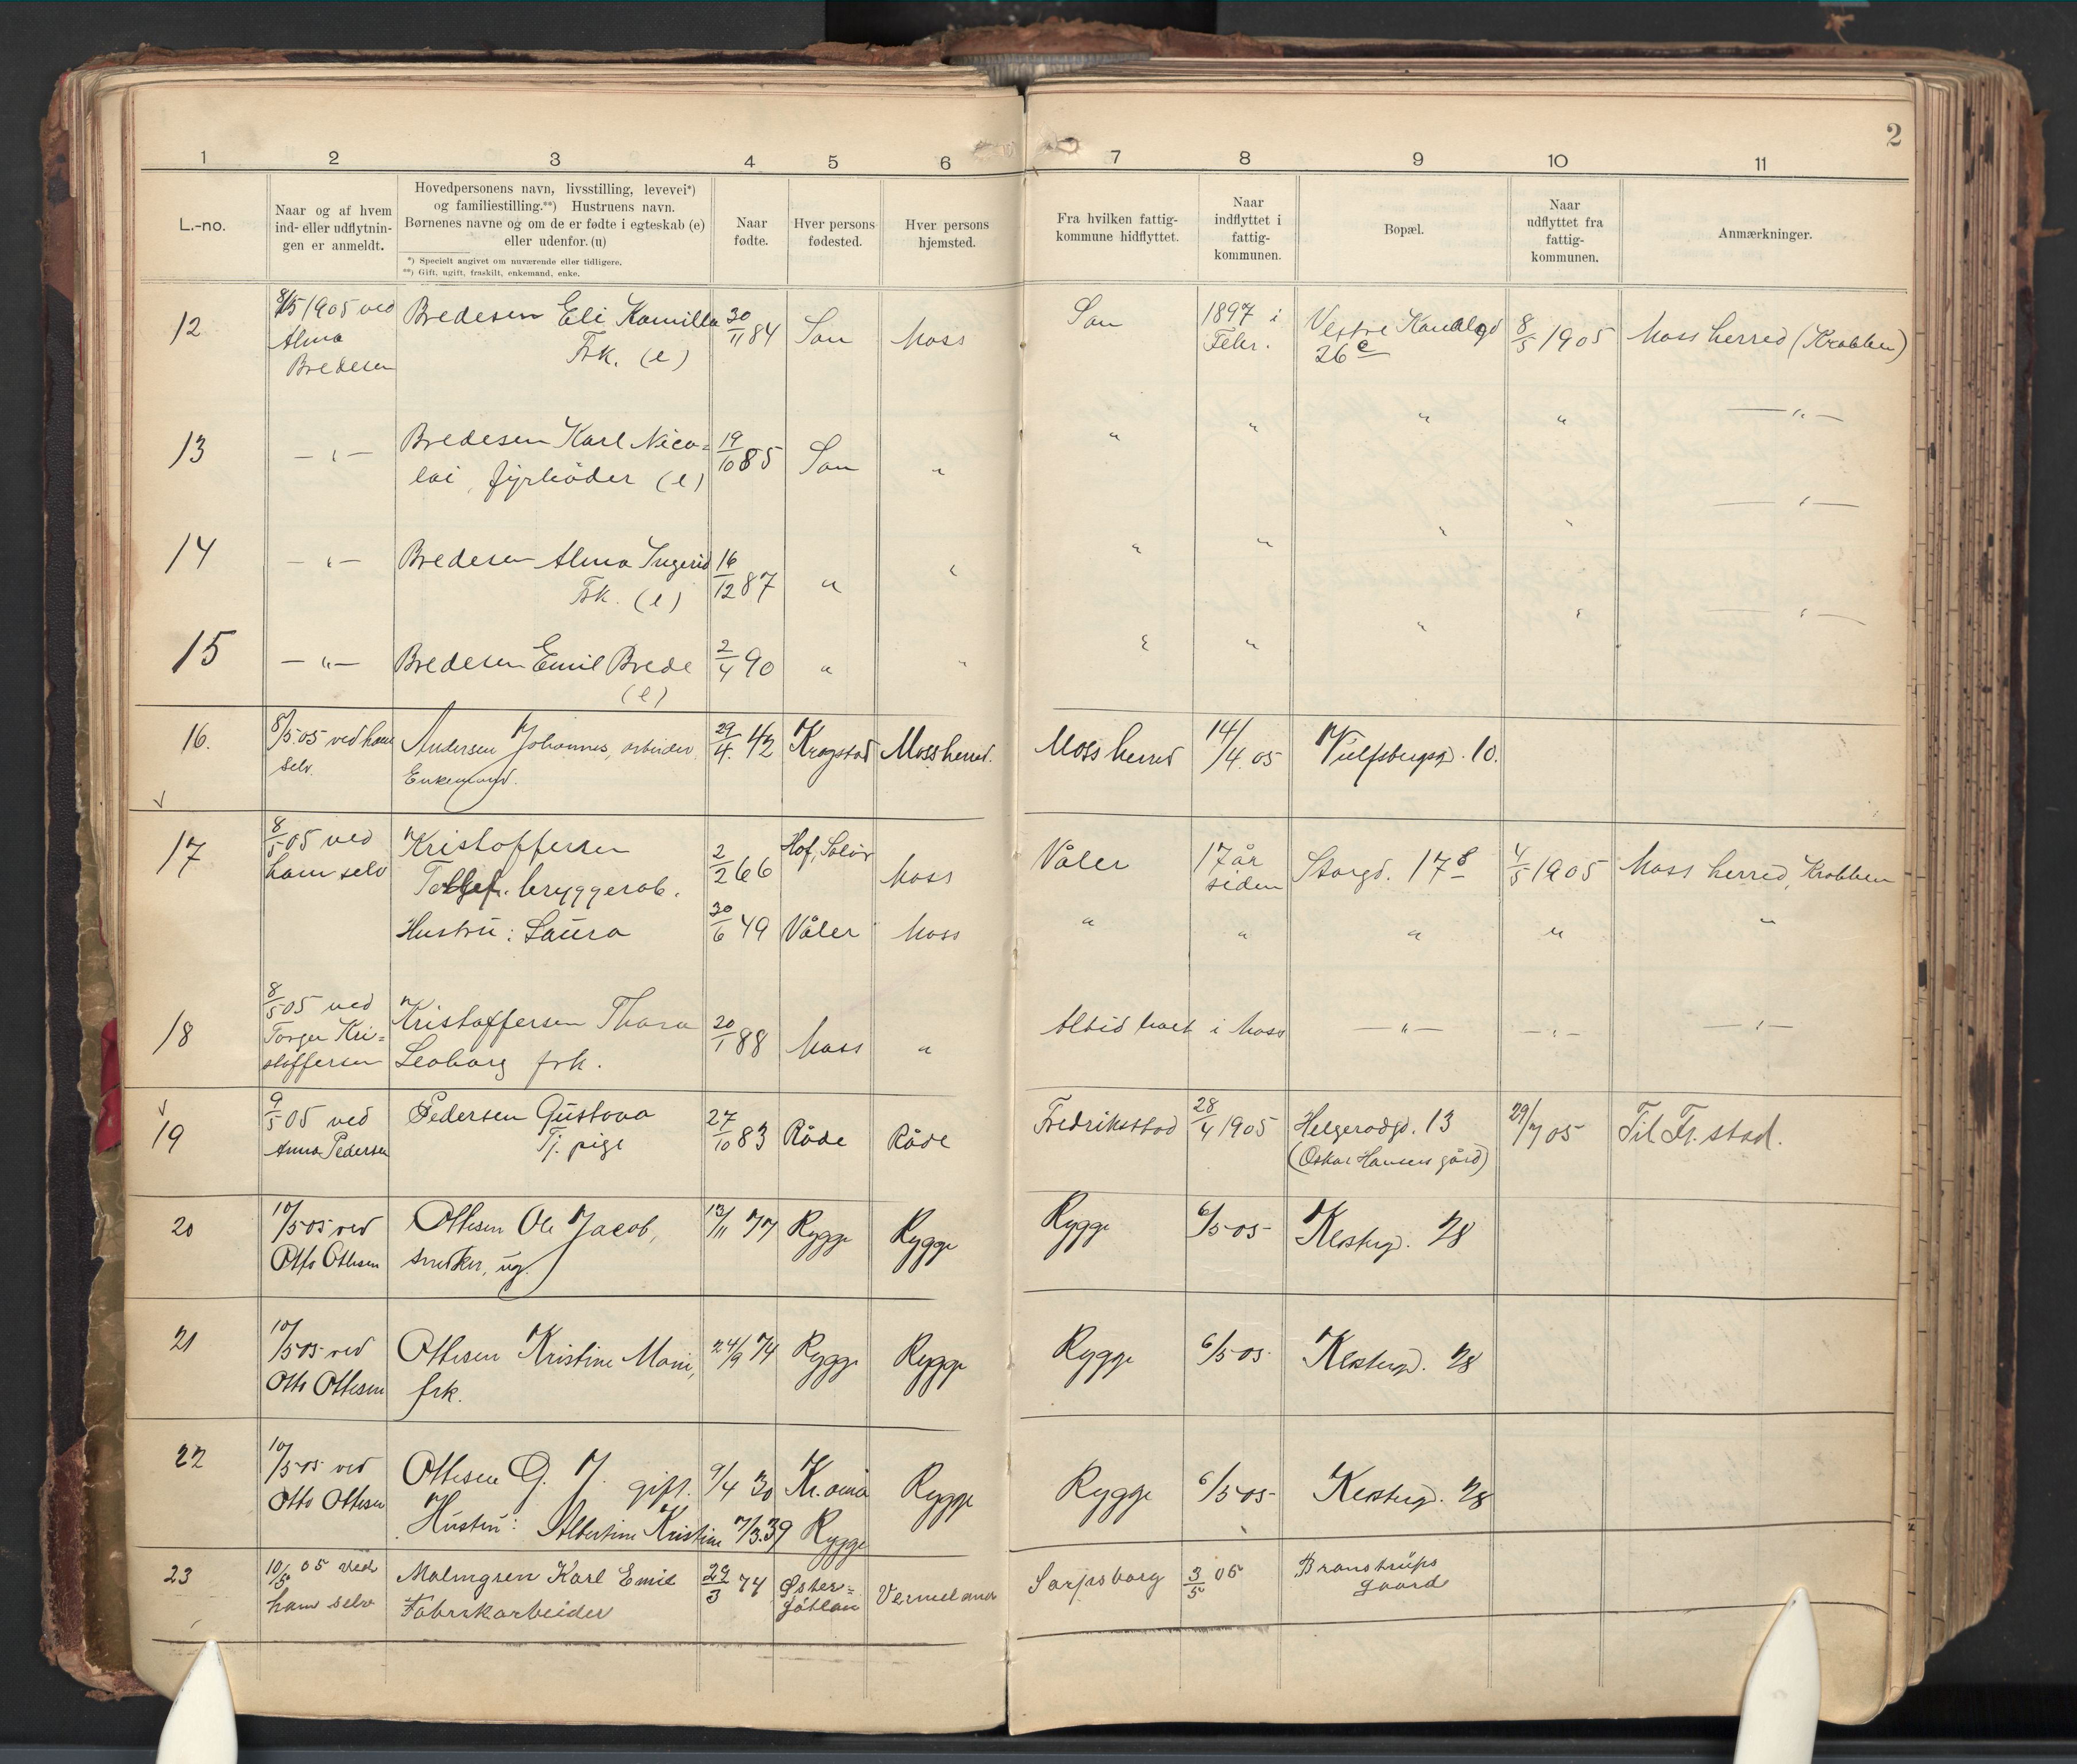 2
1 2 3 4 5 6 7 8 9 10 11
L.-no.
Naar og af hvem
ind- eller udflytnin-
gen er anmeldt.
Hovedpersonens navn, livsstilling, levevei*)
og familiestilling.**) Hustruens navn.
Børnenes navne og om de er fødte i egteskab (e)
eller udenfor. (u)
*) Specielt angivet om nuværende eller tidligere.
**) Gift, ugift, fraskilt, enkemand, enke.
Naar
fødte.
Hver persons
fødested.
Hver persons
hjemsted.
Fra hvilken fattig-
kommune hidflyttet.
Naar
indflyttet i
fattig-
kommunen.
Bopæl.
Naar
udflyttet fra
fattig-
kommunen.
Anmærkninger.
12 8/5 1905 ved Bredesen Eli Kamilla 30/11 84 Son Moss Son 1897 i Vestre Kanalgd 8/5 1905 Moss herred (Krabben)
Alma Frk. (e) Febr. 26 c
Bredesen
13 — " — Bredesen Karl Nico= 19/10 85 Son " " " " " — " —
lai, fyrbøder (e)
14 — " — Bredesen Alma Ingerid 16/12 87 " " " " " " — " —
Frk. (e)
15 — " — Bredesen Emil Brede 2/4 90 " " " " " " — " —
(e)
16. 8/5 05 ved ham Andersen Johannes, arbeider. 29/4. 42 Kragstad Moss herred. Moss herred 14/4. 05 Vulfsbergsgd. 10.
selv. Enkemand.
17 8/5 05 ved Kristoffersen 2/2 66 Hof, Solør Moss Våler 17 år Storgd. 17 4/5 1905 Moss herred, Krabben
ham selv bryggerarb. siden
Hustru: Laura 30/6 49 Våler Moss " " " " "
18 8/5 05 ved Kristoffersen Thora 20/1 88 Moss " Altid boet i Moss — " — — " — — " —
Torger Kri=
stoffersen Leoborg frk.
19 9/5 05 ved Pedersen Gustava 27/10 83 Råde Råde Fredriksstad 28/4 1905 Helgerødgd. 13 29/7 05 Til Fr.stad.
Anna Pedersen Tj. pige (Oskar Hansens gård)
20 10/5 05 ved Ottesen Ole Jacob, 13/11 77 Rygge Rygge Rygge 6/5 05 Klostergd. 28
Otto Ottesen snedker, ug.
21 10/5 05 ved Ottesen Kristine Marie, 24/9 74 Rygge Rygge Rygge 6/5 05. Klostergd. 28
Otto Ottesen frk.
22 10/5 05 ved Ottesen O. J. gift. 9/4 30 Kr.ania Rygge Rygge 6/5 05 Klostergd. 28
Otto Ottesen Hustru: Albertine Kristine 7/3. 39 Rygge
23 10/5 05 ved Malmgren Karl Emil 29/3 74 Øster= Vermeland Sarpsborg 3/5 05 Branstrups
ham selv Fabrikarbeider gøtland gaard